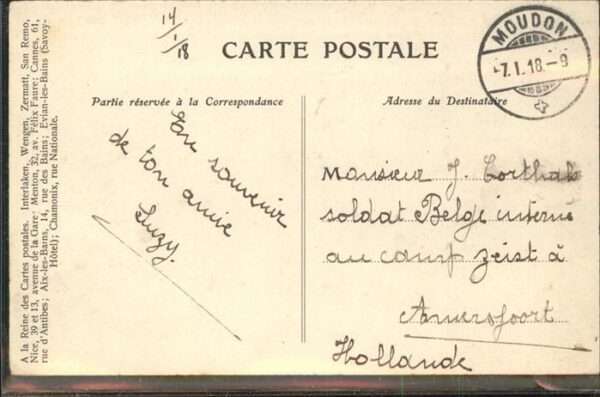 14/1/18
CARTE POSTALE
MOUDON
-7.I.18.-9
Partie réservée à la Correspondance
Adresse du Destinataire
En souvenir
de ton amie
Suzy.
Monsieur J. Corthals
soldat Belge interné
au camp Zeist à
Amersfoort
Hollande
A la Reine des Cartes postales. Interlaken, Wengen, Zermatt, San Remo,
Nice, 39 et 13, avenue de la Gare; Menton, 32, av. Félix Faure; Cannes, 61,
rue d'Antibes; Aix-les-Bains, 14, rue des Bains; Evian-les-Bains (Savoy-
Hôtel); Chamonix, rue Nationale.